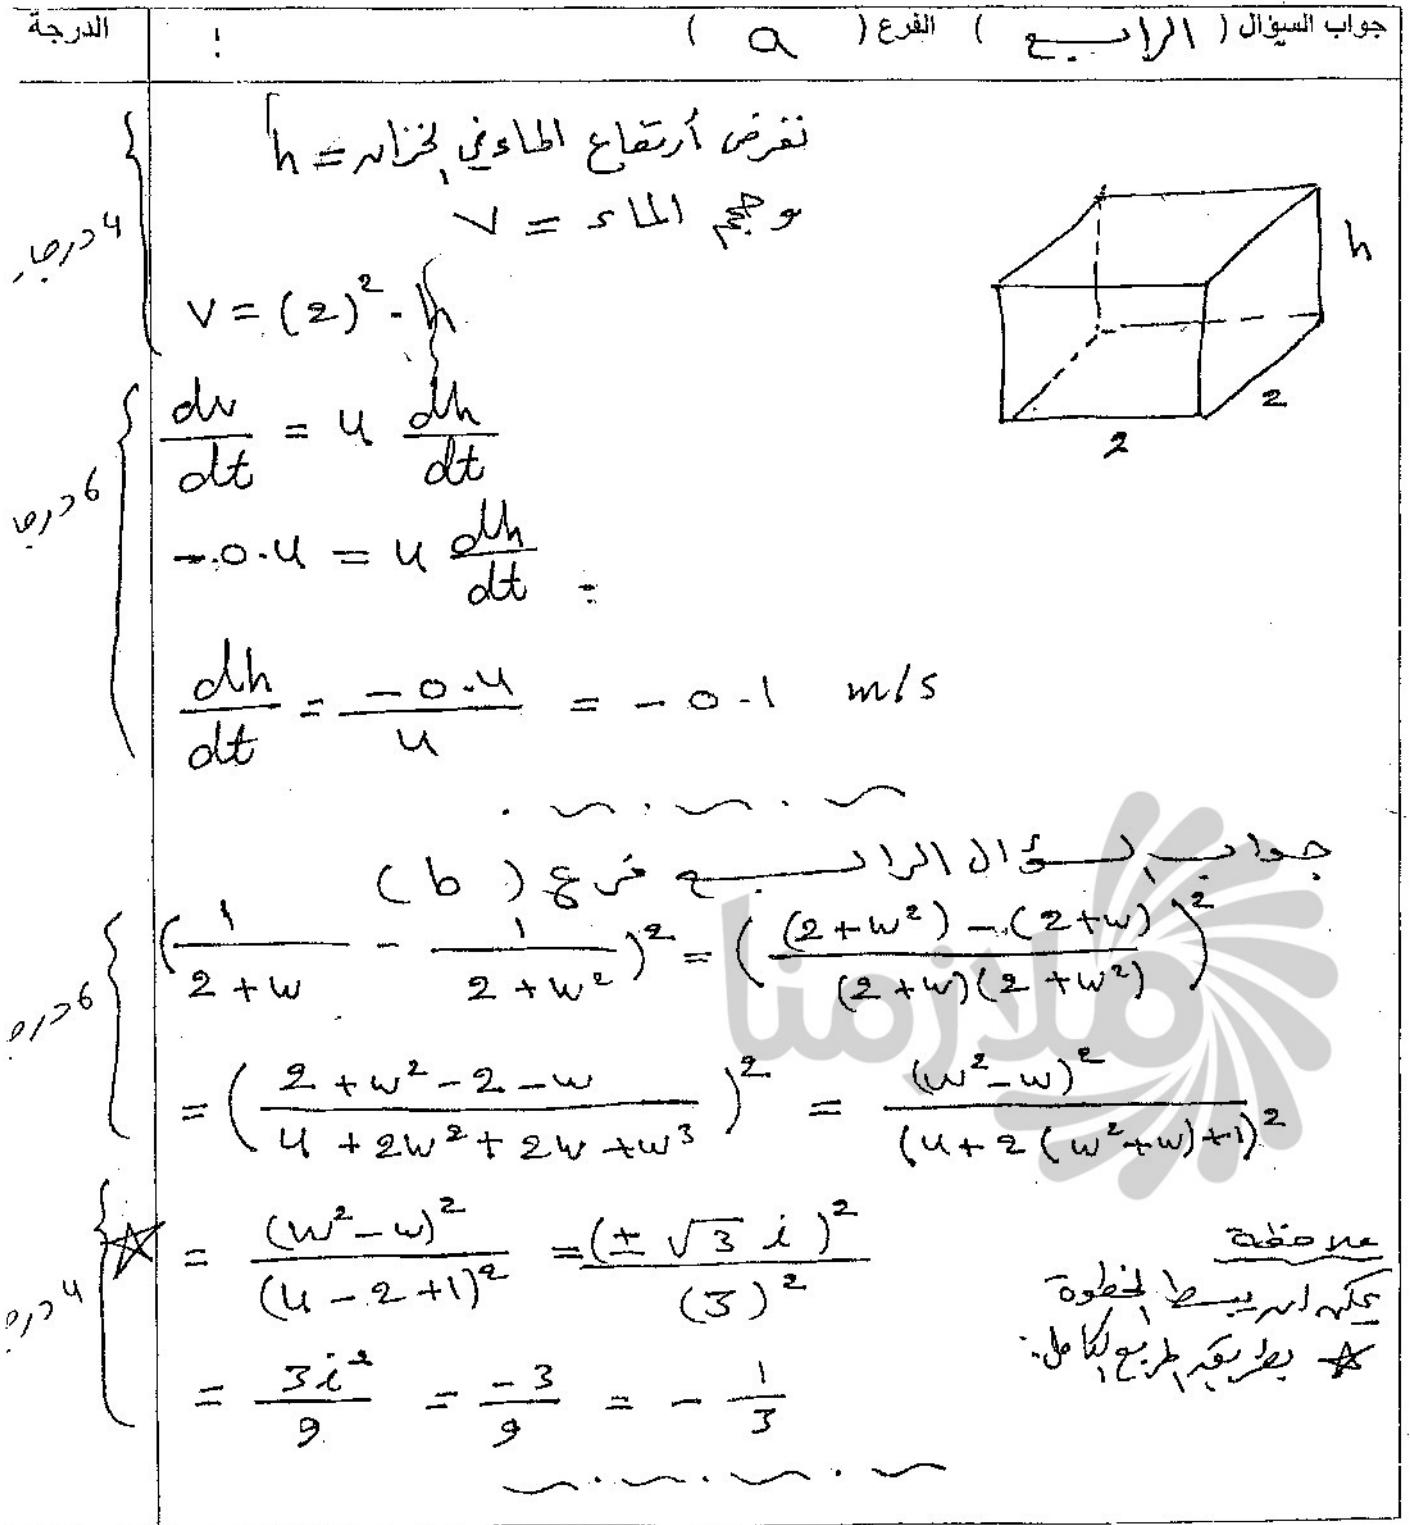 جواب السؤال ( الرابع ) الفرع ( a ) : الدرجة
نفرض أرتفاع الماء في الخزان = h
وحجم الماء = V
4 درجات
V = (2)² · h
h
2
2
dv/dt = 4 dh/dt
6 درجا
-0.4 = 4 dh/dt
dh/dt = -0.4/4 = -0.1 m/s
جواب السؤال الرابع فرع ( b )
(1/(2+w) - 1/(2+w²))² = (((2+w²)-(2+w))/((2+w)(2+w²)))²
6 درج
= ((2+w²-2-w)/(4+2w²+2w+w³))² = (w²-w)²/(4+2(w²+w)+1)²
☆ = (w²-w)²/(4-2+1)² = (± √3 i)²/(3)²
4 درج
= 3i²/9 = -3/9 = - 1/3
ملاحظة
يمكن ان يبسط الخطوة
☆ بطريقة المربع الكامل:
ملازمنا